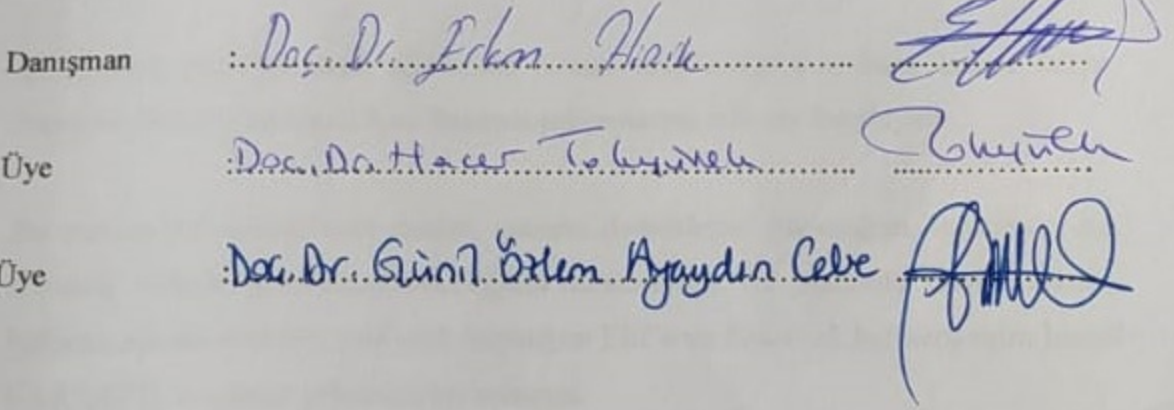 Danışman : Doç. Dr. Erkan Hirik
Üye : Doç. Dr. Hacer Tokyürek
Üye : Doç. Dr. Günil Özlem Ayaydın Cebe